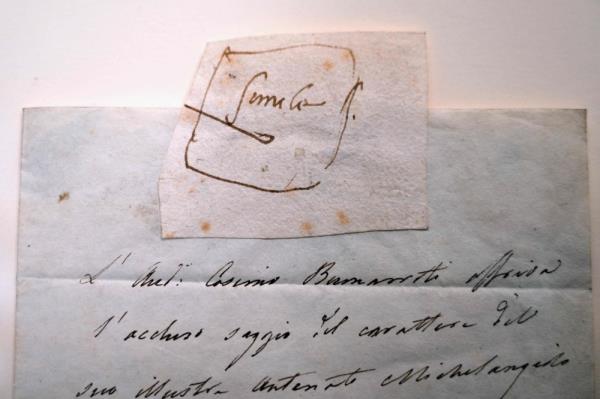 Simile
L' Aud.ʳ Cosimo Buonarroti offriva
l'accluso saggio del carattere del
suo illustre Antenato Michelangelo